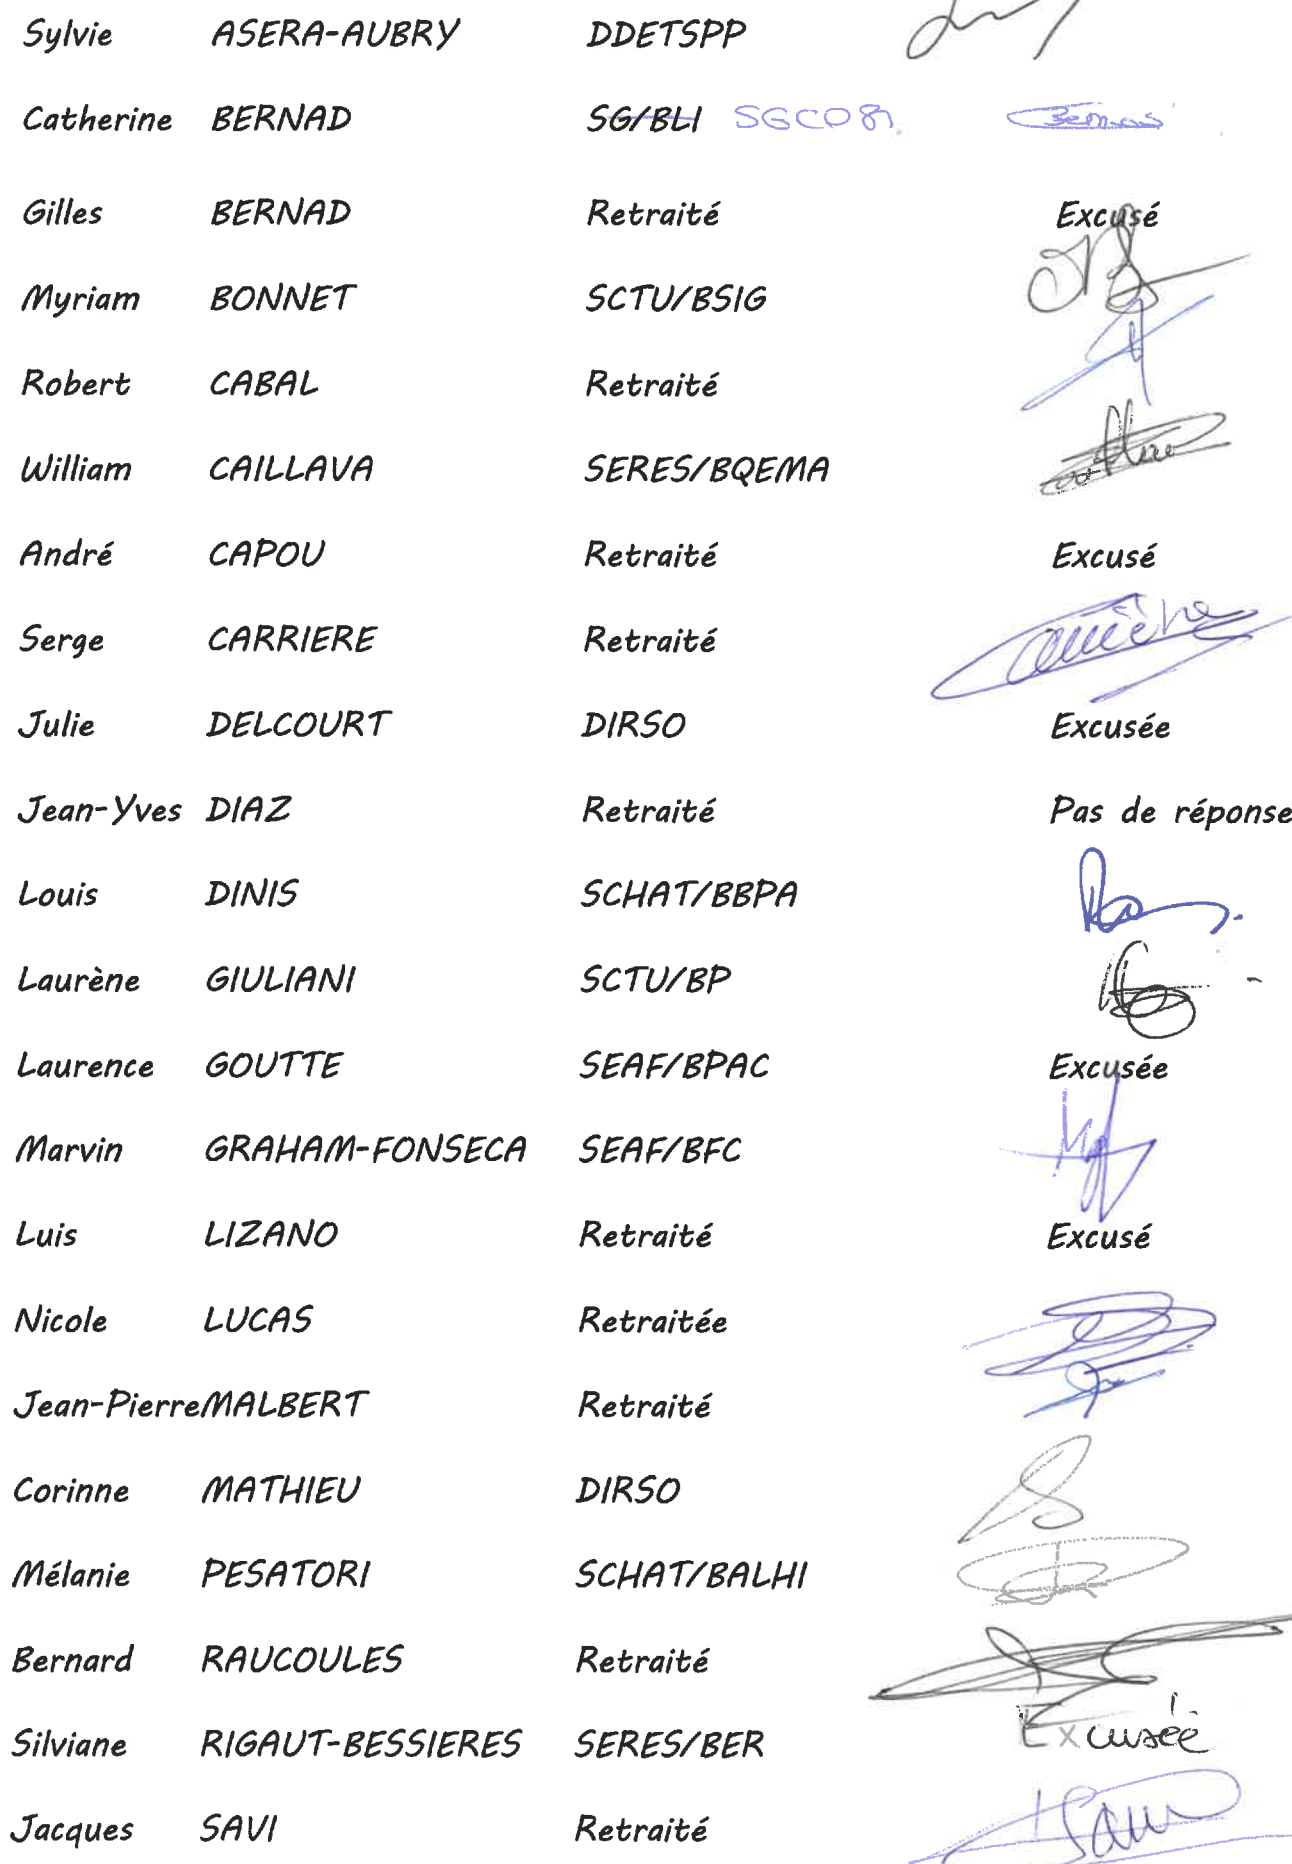 Sylvie ASERA-AUBRY DDETSPP
Catherine BERNAD SG/BLI SGCD81
Gilles BERNAD Retraité Excusé
Myriam BONNET SCTU/BSIG
Robert CABAL Retraité
William CAILLAVA SERES/BQEMA
André CAPOU Retraité Excusé
Serge CARRIERE Retraité
Julie DELCOURT DIRSO Excusée
Jean-Yves DIAZ Retraité Pas de réponse
Louis DINIS SCHAT/BBPA
Laurène GIULIANI SCTU/BP
Laurence GOUTTE SEAF/BPAC Excusée
Marvin GRAHAM-FONSECA SEAF/BFC
Luis LIZANO Retraité Excusé
Nicole LUCAS Retraitée
Jean-Pierre MALBERT Retraité
Corinne MATHIEU DIRSO
Mélanie PESATORI SCHAT/BALHI
Bernard RAUCOULES Retraité
Silviane RIGAUT-BESSIERES SERES/BER Excusée
Jacques SAVI Retraité